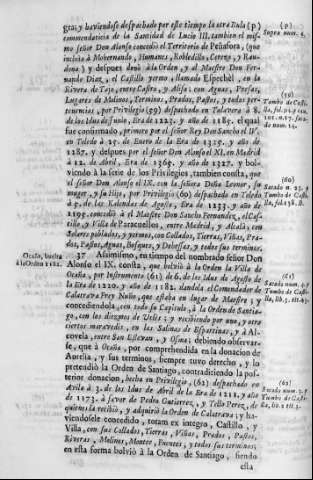 gras; y haviendose despachado por este tiempo la otra Bula (p)
commendaticia de la Santidad de Lucio III. tambien el mis-
mo señor Don Alonso concedió el Territorio de Peñafora, (que
incluìa à Mohernando, Humanes, Robledillo, Cerezo, y Razbo-
na) y despues donò à la Orden, y al Maestre Don Fer-
nando Diaz, el Castillo yermo, llamado Espechèl, en la
Rivera de Tajo, entre Castro, y Alisa: con Aguas, Presas,
Lugares de Molinos, Terminos, Prados, Pastos, y todas per-
tenencias, por Privilegio (59) despachado en Talavera à 8.
de los Idus de Junio, Era de 1223. y año de 1185. el qual
fue confirmado, primero por el señor Rey Don Sancho el IV.
en Toledo à 25. de Enero de la Era de 1325. y año de
1287. y despues por el señor Don Alonso el XI. en Madrid
à 12. de Abril, Era de 1365. y año de 1327. y bol-
viendo à la serie de los Privilegios, tambien consta, que
el señor Don Alonso el IX. con la señora Doña Leonor, su
muger, y su Hijo, por Privilegio (60) despachado en Toledo
à de las Kalendas de Agosto, Era de 1233. y año de
1195. concedió à el Maestre Don Sancho Fernandez, el Cas-
tillo, y Villa de Paracuellos, entre Madrid, y Alcalà; con
Solares poblados, y yermos, con Collados, Tierras, Viñas, Pra-
dos, Pastos, Aguas, Bosques, y Dehessas, y todos sus terminos.
37 Assimismo, en tiempo del nombrado señor Don
Alonso el IX. consta, que bolviò à la Orden la Villa de
Ocaña, por Instrumento (61) de 6. de los Idus de Agosto de
la Era de 1220. y año de 1182. dandola el Comendador de
Calatrava Frey Nuño, que estaba en lugar de Maestre; y
concediendola, con todo su Capitulo, à la Orden de Santia-
go, con los diezgos de Ucles; y recibiendo por uno, y otro
ciertos maravedis, en las Salinas de Espartinas, y à Al-
covela, entre San Estevan, y Osma; debiendo observar-
se, que à Ocaña, por comprehendida en la donacion de
Aurelia, y sus terminos, siempre tuvo derecho, y lo
pretendiò la Orden de Santiago, contradiciendo la pos-
terior donacion, hecha en Privilegio, (62) despachado en
Avila à 3. de los Idus de Abril de la Era de 1211. y año
de 1173. à favor de Pedro Gutierrez, y Tello Perez, de
quienes la recibiò, y adquiriò la Orden de Calatrava; y ha-
viendosele concedido, totam ex integro, Castillo, y
Villa, con sus Collados, Tierras, Viñas, Prados, Pastos,
Riveras, Molinos, Montes, Fuentes, y todos sus terminos;
en esta forma bolviò à la Orden de Santiago, siendo
esta
(p)
Supra num. 4.
(59)
Tumbo de Casti-
lla,
(60)
Tumbo de Casti-
lla, fol. 138. B.
Ocaña, buelta
à la Orden 1182.
(61)
Tumbo de Casti-
lla, lib. 3.
(62)
Tumbo de Casti-